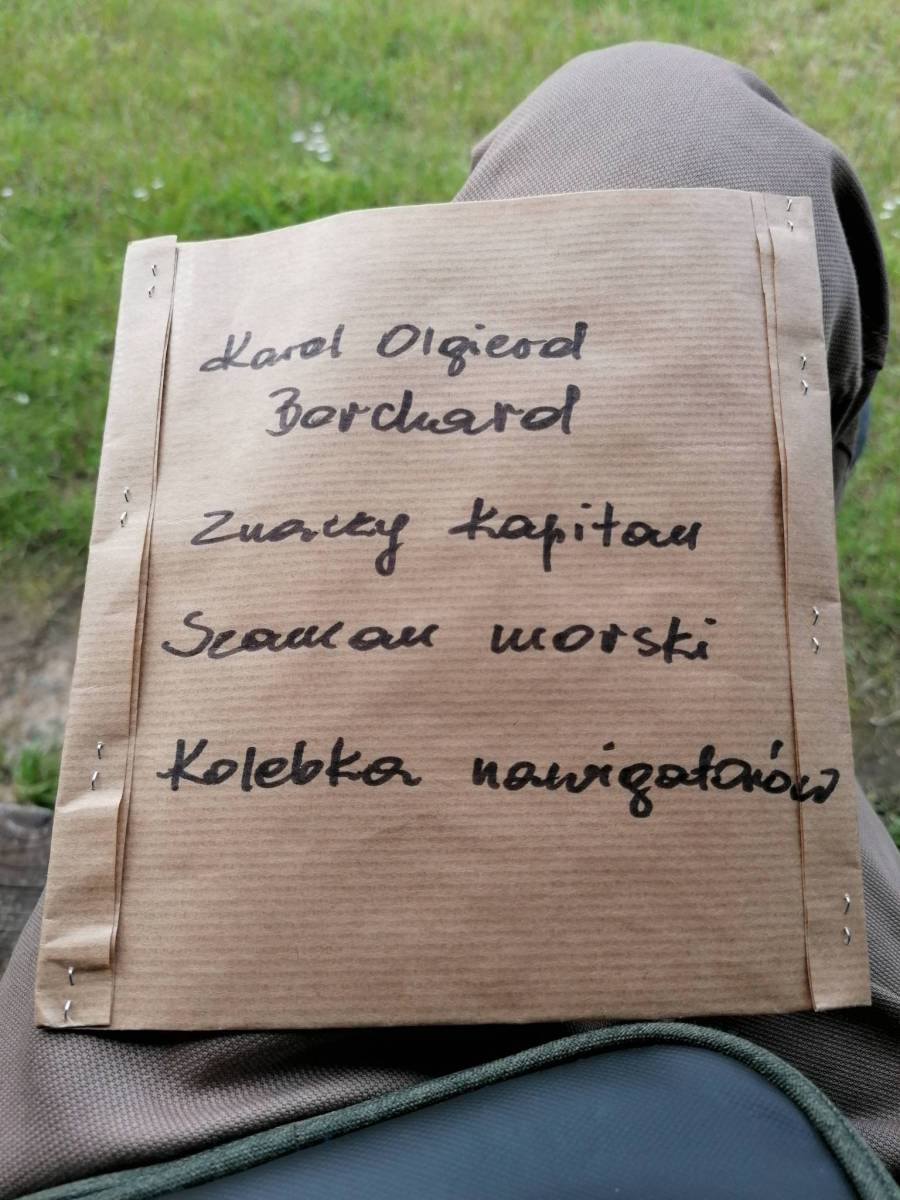 Karol Olgierd
Borchard
Znaczy Kapitan
Szaman morski
Kolebka nawigatorów